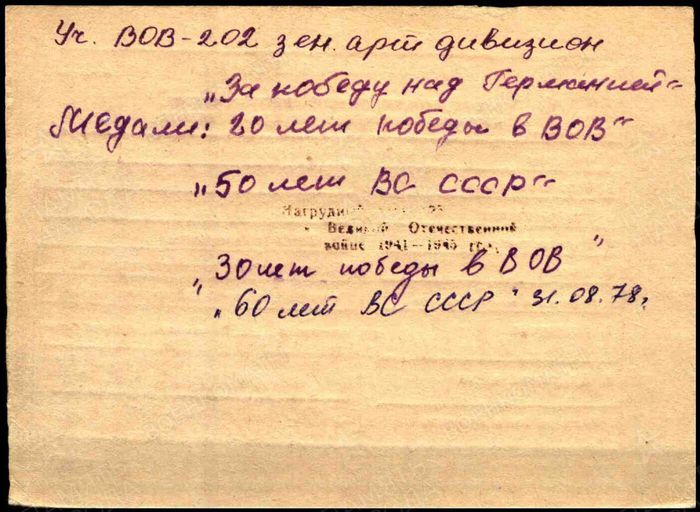 Уч. ВОВ-202 зен. арт дивизион
„За победу над Германией“
Медали: 20 лет победы в ВОВ“
„50 лет ВС СССР“
Нагрудный
Великой Отечественной
войне 1941—1945 гг.
„30 лет победы в ВОВ"
„60 лет ВС СССР" 31.08.78г